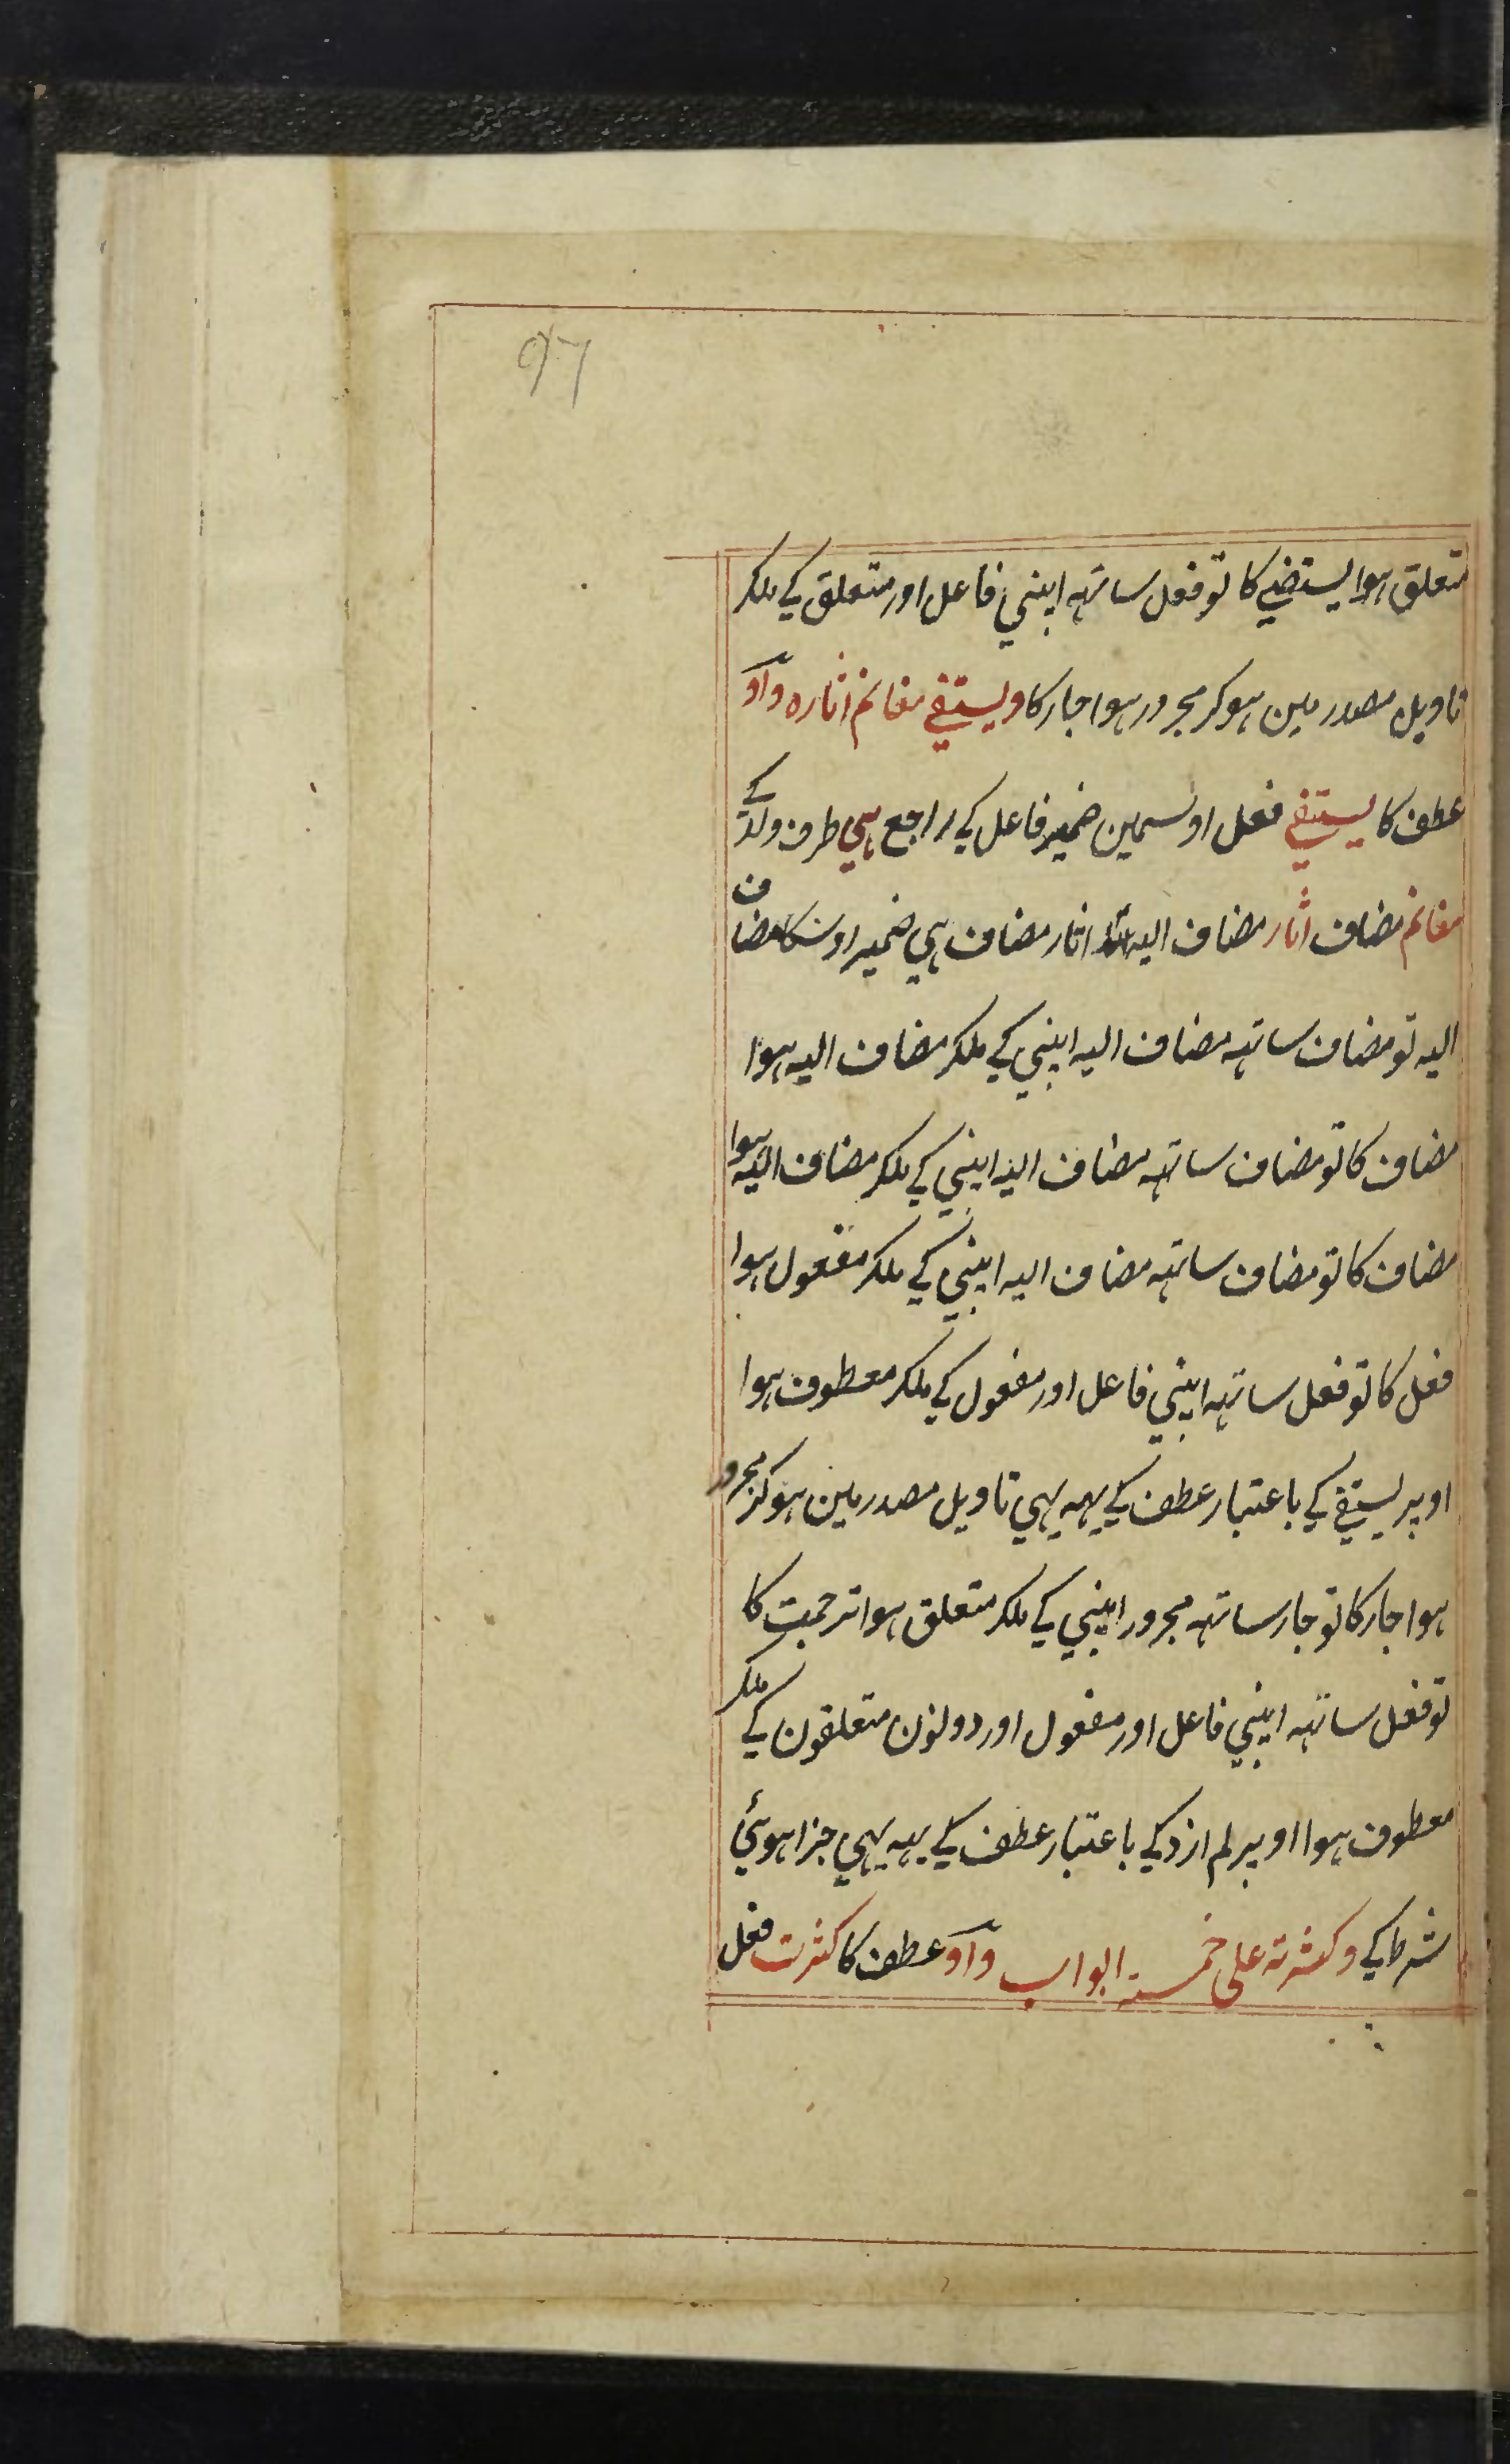 ۹۶
متعلق ہوا یستضیے کا تو فعل ساتہہ اپنی فاعل اور متعلق کے ملکر
تاویل مصدر مین ہوکر مجرور ہوا جار کا ویستقے مغانم اثارہ واو
عطف کا یستقے فعل اوسمین ضمیر فاعل کے راجع ہی طرف ولد کے
مغانم مضاف اثار مضاف الیہ اثار مضاف ہی ضمیر اوسکا مضاف
الیہ تو مضاف ساتہہ مضاف الیہ اپنی کے ملکر مضاف الیہ ہوا
مضاف کا تو مضاف ساتہہ مضاف الیہ اپنی کے ملکر مضاف الیہ ہوا
مضاف کا تو مضاف ساتہہ مضاف الیہ اپنی کے ملکر مفعول ہوا
فعل کا تو فعل ساتہہ اپنی فاعل اور مفعول کے ملکر معطوف ہوا
اوپر یستقے کے باعتبار عطف کے یہہ بہی تاویل مصدر مین ہوکر مجرور
ہوا جار کا تو جار ساتہہ مجرور اپنی کے ملکر متعلق ہوا ترجمت کا
تو فعل ساتہہ اپنی فاعل اور مفعول اور دونون متعلقون کے ملکر
معطوف ہوا اوپر لم ازد کے باعتبار عطف کے یہہ بہی جزا ہوئی
شرط کے وکسرتہ علی خمسة ابواب واو عطف کا کسرت فعل